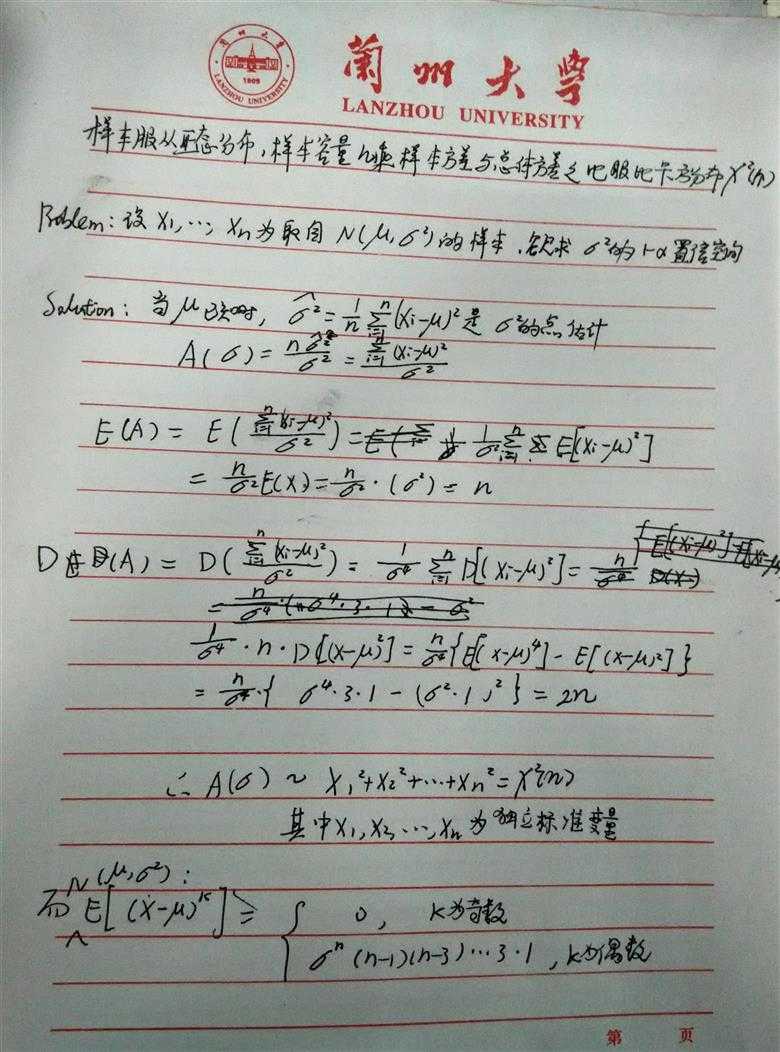 兰州大学
1909
LANZHOU UNIVERSITY
蘭州大学
LANZHOU UNIVERSITY
样本服从正态分布,样本容量n乘样本方差与总体方差之比服从卡方分布χ²(n)
Problem: 设 X₁,…,Xn为取自 N(μ,σ²)的样本.欲求 σ²的1-α置信空间
Solution: 当μ已知时, σ̂²=1/n Σᵢ₌₁ⁿ(Xi-μ)²是 σ²的点估计
A(σ)=nσ̂²/σ²=Σᵢ₌₁ⁿ(Xi-μ)²/σ²
E(A)= E(Σᵢ₌₁ⁿ(Xi-μ)²/σ²)= 1/σ² Σᵢ₌₁ⁿ E[(Xi-μ)²]
= n/σ² E(X)=n/σ²·(σ²)= n
D(A)= D(Σᵢ₌₁ⁿ(Xi-μ)²/σ²)= 1/σ⁴ Σᵢ₌₁ⁿ D[(Xi-μ)²]= n/σ⁴
1/σ⁴·n·D[(X-μ)²]=n/σ⁴{E[(X-μ)⁴]-E[(X-μ)²]}
= n/σ⁴·{σ⁴·3·1-(σ²·1)²}=2n
∴ A(σ)~ X₁²+X₂²+…+Xn²=χ²(n)
其中X₁,X₂,…,Xn为独立标准变量
N(μ,σ²):
而 E[(X-μ)ᵏ]= { 0, K为奇数
σⁿ(n-1)(n-3)…3·1,k为偶数
第 页